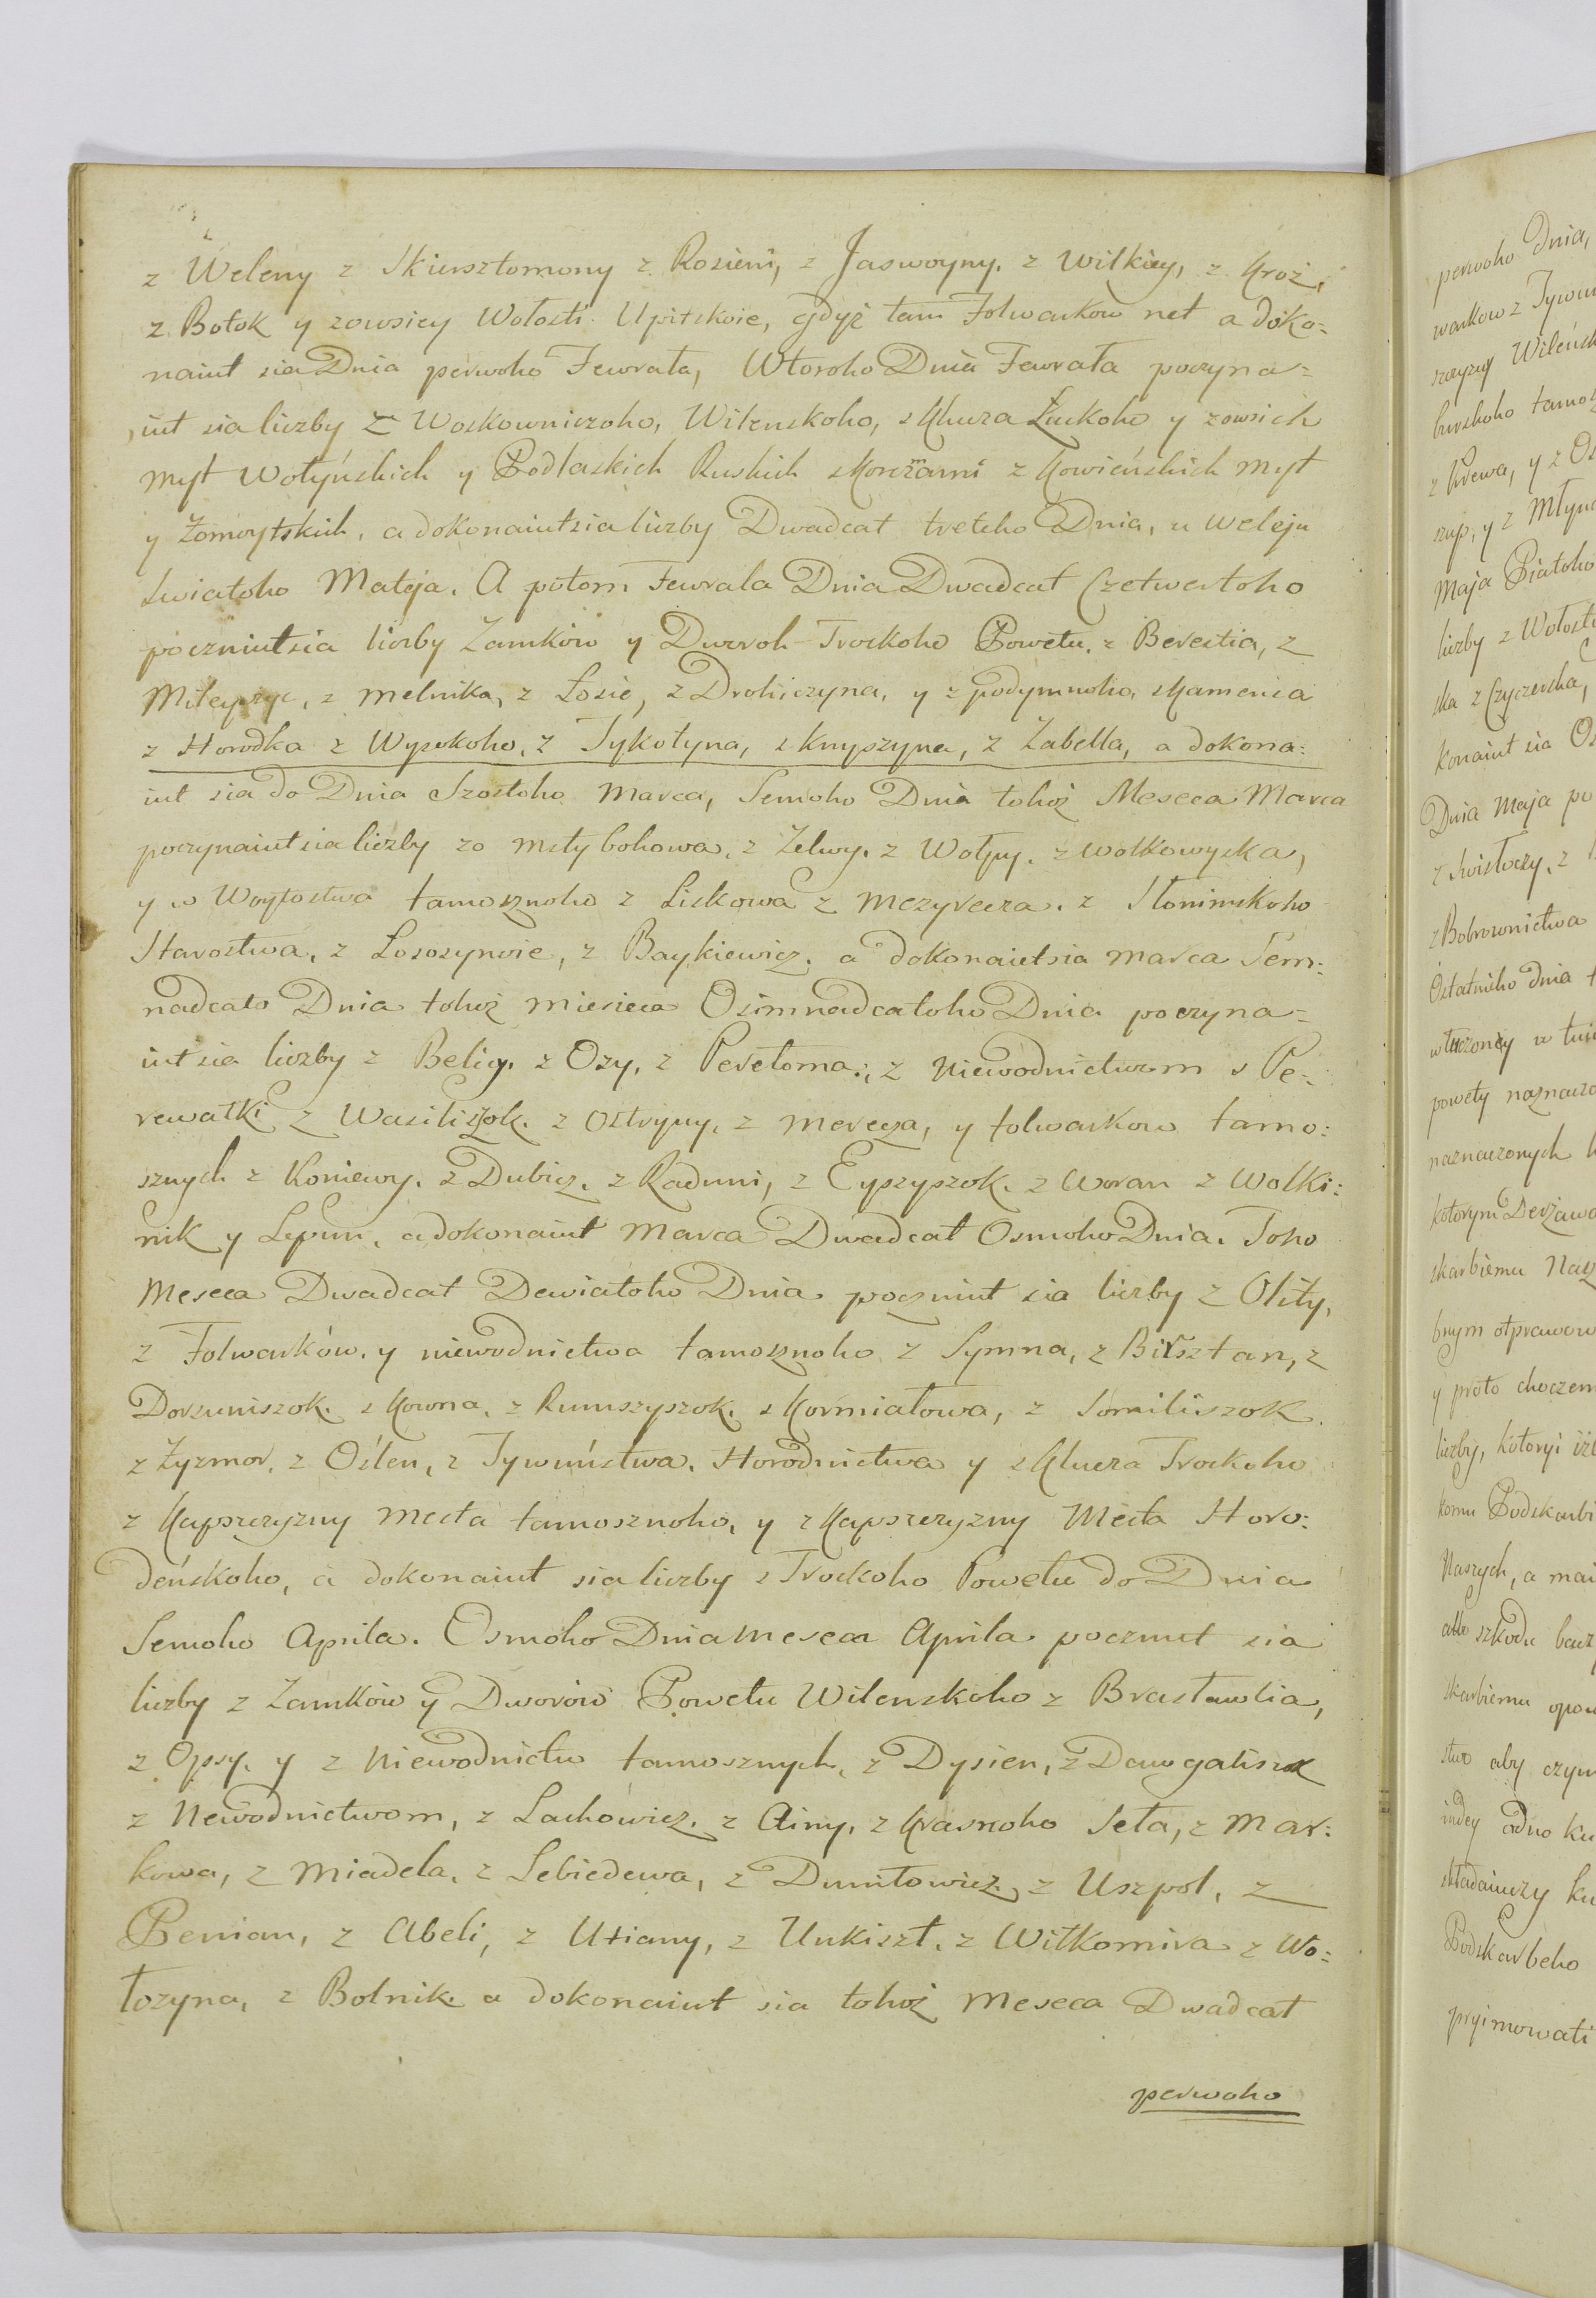 z Weleny z Skiersztomony z Rosieni, z Jaswoyny. z Wilkiey, z Kroż,
z Botok y zowsiey Wołosti Upitskoie, gdyż tam Folwarkow net a doko=
naiut sia Dnia perwoho Fewrała, Wtoroho Dnia Fewrała poczyna=
iut sia liczby z Woskowniczoho, Wilenskoho, s Klucza Łuckoho y zowsich
Myt Wołyńskich y Podlaskich Ruskich s Korczami z Kowieńskich Myt
y Żomoytskich, a dokonaiutsia liczby Dwadcat treteho Dnia, u Weleju
Swiatoho Mateja. A potom Fewrala Dnia Dwadcat Czetwertoho
poczniutsia liczby Zamków y Dworoh Trockoho Powetu. z Berestia, z
Mileyczyc, z Melnika, z Łosic, z Drohiczyna, y z podymnoho, s Kamenca
z Horodka z Wysokoho, z Tykotyna, s Knyszyna, z Zabella, a dokona:
iut sia do Dnia Szostoho Marca, Semoho Dnia tohoż Meseca Marca
poczynaiutsia liczby zo Mstybohowa, z Zelwy. z Wołpy. z Wołkowyska,
y w Woytostwa tamosznoho z Liskowa z Mezyrecza. z Słonimskoho
Starostwa, z Lososynoie, z Baykiewicz, a dokonaiutsia Marca Sem:
nadcato Dnia tohoż miesieca Osimnadcatoho Dnia poczyna=
iut sia liczby z Belicy. z Ozy, z Perełoma:, z Niewodnictwom s Pe=
rewałki z Wasiliszok. z Ostryny, z Merecza, y folwarkow tamo:
sznych z Koniewy. z Dubicz. z Raduni, z Eyszyszok. z Woran z Wolki:
nik y Lepun, a dokonaiut Marca Dwadcat Osmoho Dnia. Toho
Meseca Dwadcat Dewiatoho Dnia poczniut sia liczby z Olity,
z Folwarków, y niewodnictwa tamosznoho z Symna, z Birsztan, z
Dorsuniszok. s Kowna, z Rumszyszok. s Kormiałowa, z Somiliszok.
z Zyzmor, z Oślen, z Tywuństwa. Horodnictwa y s Klucza Trockoho
z Kapszczyzny Mesta tamosznoho, y z Kapszczyzny Mesta Horo:
deńskoho, a dokonaiut sia liczby s Trockoho Powetu do Dnia
Semoho Aprila. Osmoho Dnia Meseca Aprila poczniut sia
liczby z Zamków y Dworów Powetu Wilenskoho z Brasławlia,
z Opsy. y z Niewodnictw tamosznych, z Dysien, z Dawgaliszok
z Newodnictwom, z Lachowicz. z Ainy, z Krasnoho Seła, z Mar:
kowa, z Miadela, z Lebiedewa, z Dunitowicz, z Uszpol, z
Penian, z Abeli, z Utiany, z Unkiszt. z Wiłkomira z Wo:
łozyna, z Bolnik a dokonaiut sia tohoż Meseca Dwadcat
perwoho
perwoho Dnia,
warkow z Tywun
szczyzny Wileńsk
burskoho tamosz
z Krewa, y z Os
szup, y z Młyna
Maja Piatoho
liczby z Wołosti
ska z Czyczerska,
konaiut sia Os
Dnia Maja po
z Swisłoczy, z
z Bobrownictwa
Ostatnieho dnia t
powety naznacz
naznaczonych
kotorym Derżawc
skarbiemu Nasz
bnym otprawow
y proto choczem
liczby, kotoryi
komu Podskarbi
Naszych, a mai
albo szkodu
skarbiemu opow
stwo aby czyn
indey odno ku
składaiuczy ku
Podskarbeho
pryimowati